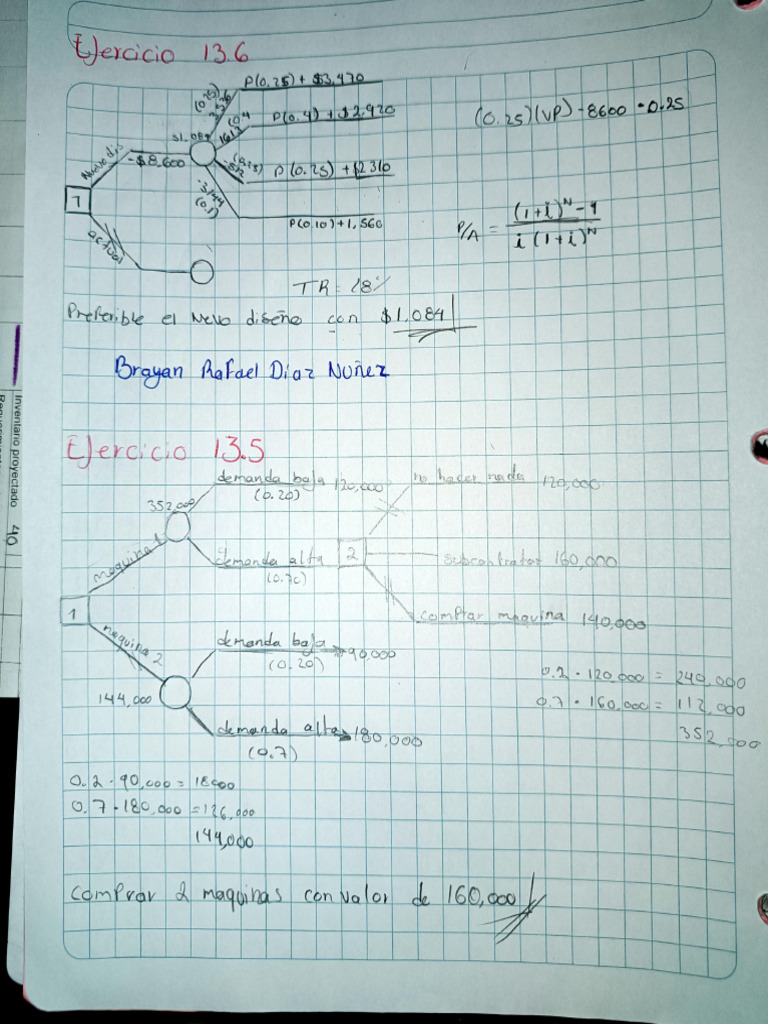 Ejercicio 13.6
P(0.25) + $3,470
(0.25)
P(0.4) + $2,920
(0.4
(0.25)(VP) - 8600 • 0.25
$1.084
1613
Nuevo dis
-$8,600
(0.25)
-512
P(0.25) + $2310
1
-3144
(0.1)
P(0.10) + 1,560
actual
P/A = (1+i)^N - 1
i (1+i)^N
TR = 18%
Preferible el Nevo diseño con $1.084
Brayan Rafael Diaz Nuñez
Inventario proyectado 40
Ejercicio 13.5
demanda baja 120,000
(0.20)
no hacer nada 120,000
352,000
maquina 1
demanda alta 2
(0.70)
subcontratar 160,000
1
comprar maquina 140,000
maquina 2
demanda baja 90,000
(0.20)
0.2 • 120.000 = 240,000
144,000
0.7 • 160,000 = 112,000
352,000
demanda alta 180,000
(0.7)
0.2 • 90,000 = 18000
0.7 • 180,000 = 126,000
144,000
comprar 2 maquinas con valor de 160,000